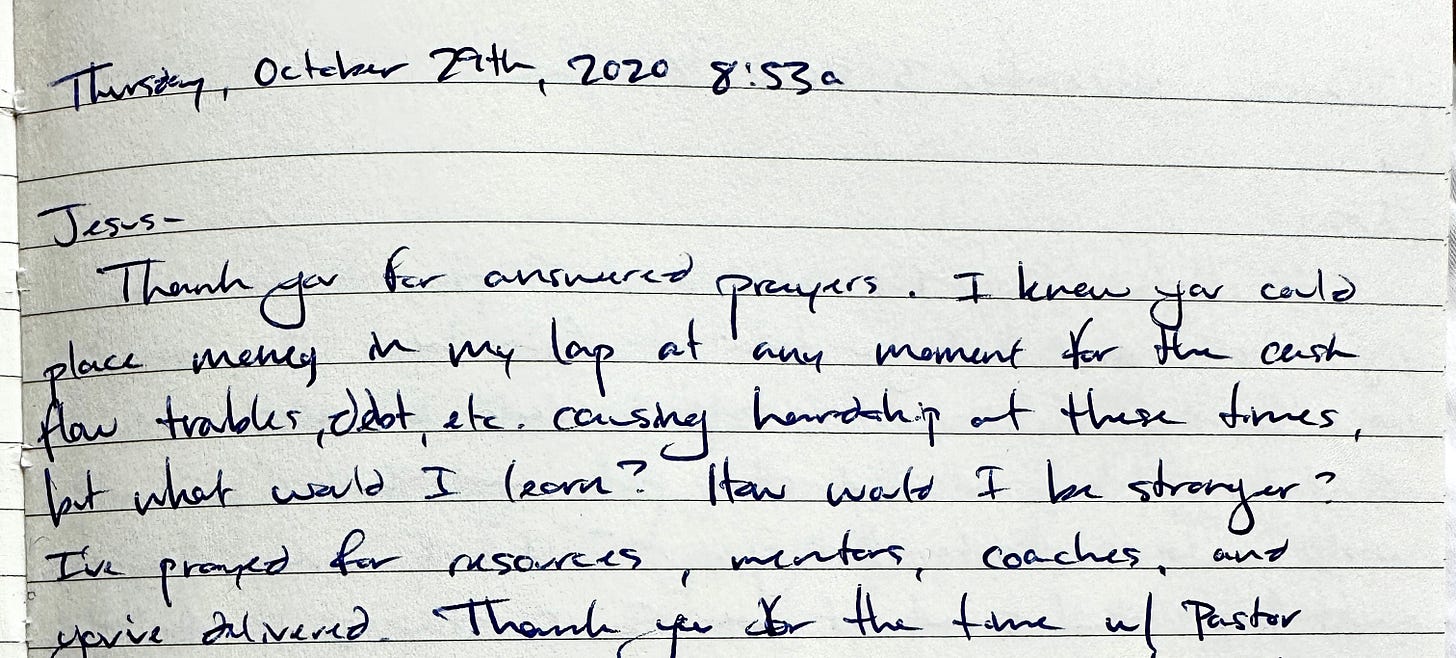 Thursday, October 29th, 2020 8:53a
Jesus-
Thank you for answered prayers. I know you could
place money in my lap at any moment for the cash
flow troubles, debt, etc. causing hardship at these times,
but what would I learn? How would I be stronger?
I've prayed for resources, mentors, coaches, and
you've delivered. Thank you for the time w/ Pastor